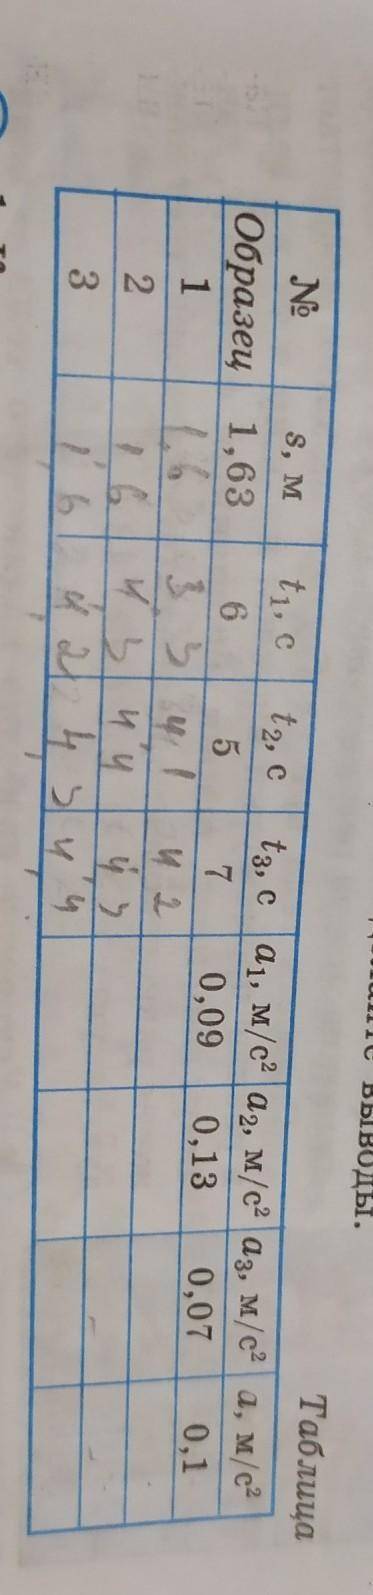 выводы.
Таблица
№ s, м t₁, с t₂, с t₃, с a₁, м/с² a₂, м/с² a₃, м/с² a, м/с²
Образец 1,63 6 5 7 0,09 0,13 0,07 0,1
1 1,6 3 3 4,1 4 2
2 1 6 4,3 4,4 4,3
3 1,6 4,2 4,3 4,4